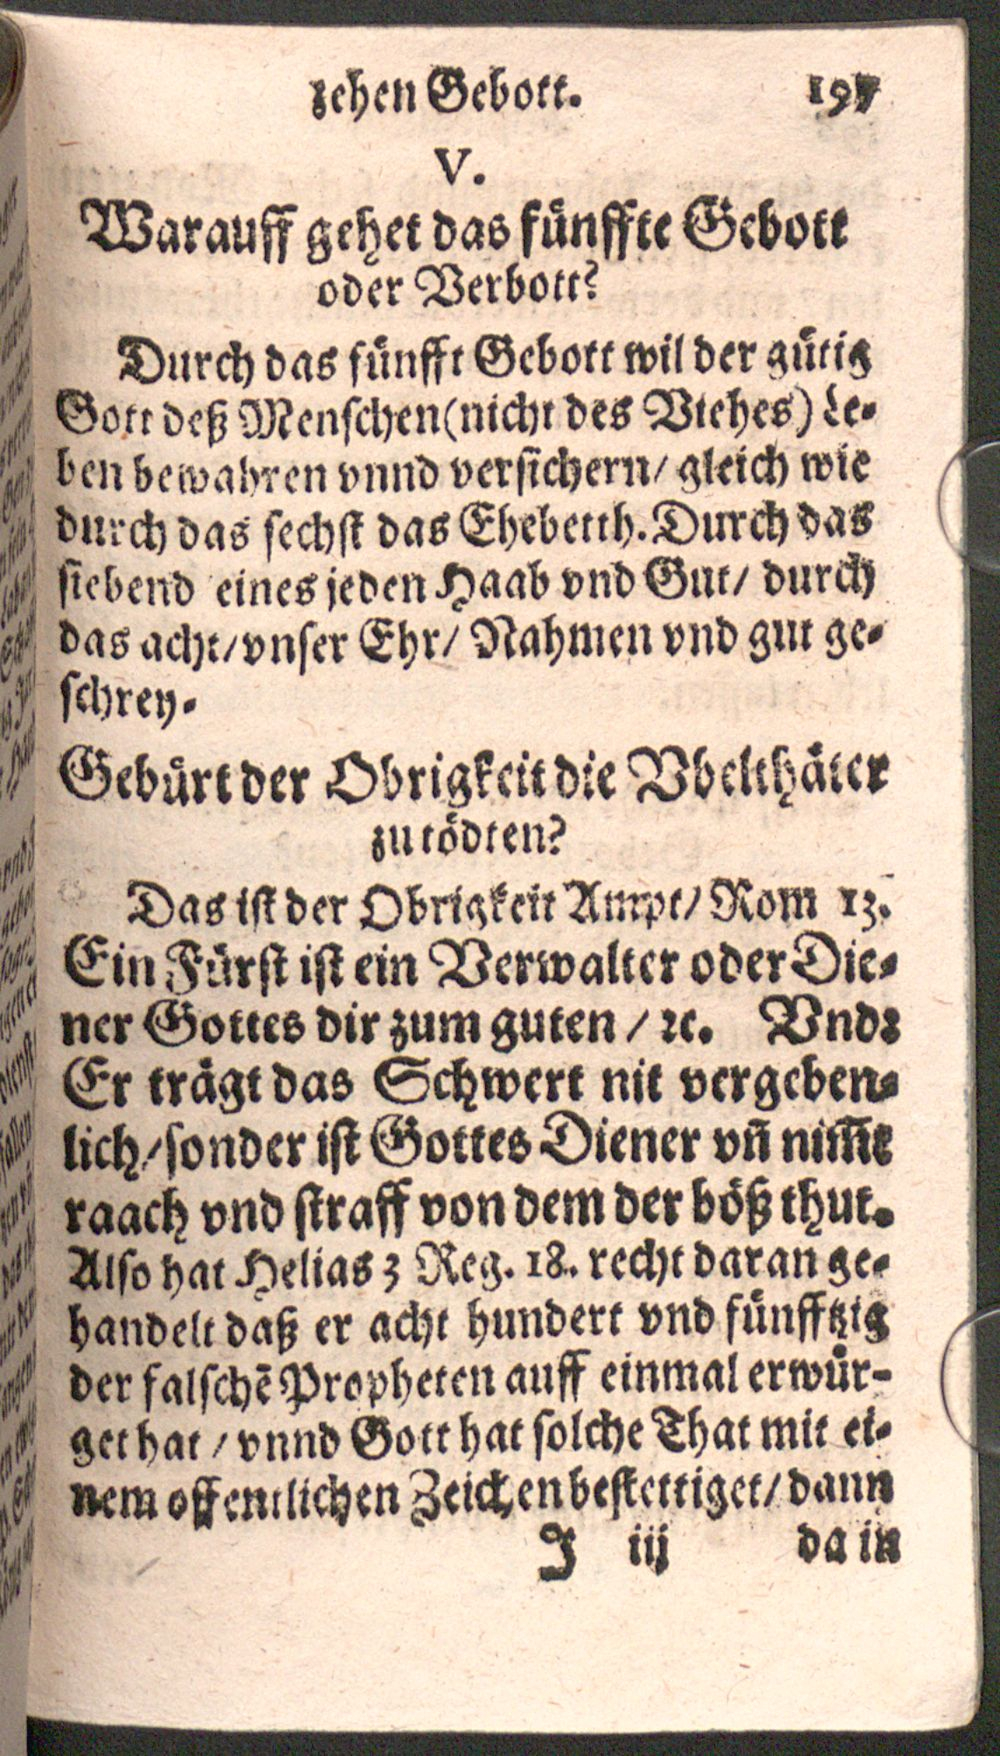 zehen Gebott. 197
V.
Warauff gehet das fünffte Gebott
oder Verbott?
Durch das fünfft Gebott wil der gütig
Gott deß Menschen (nicht des Viehes) Le-
ben bewahren vnnd versichern/ gleich wie
durch das sechst das Ehebetth. Durch das
siebend eines jeden Haab vnd Gut/ durch
das acht/ vnser Ehr/ Nahmen vnd gut ge-
schrey.
Gebürt der Obrigkeit die Vbelthäter
zu tödten?
Das ist der Obrigkeit Ampt/ Rom 13.
Ein Fürst ist ein Verwalter oder Die-
ner Gottes dir zum guten / ꝛc. Vnd:
Er trägt das Schwert nit vergeben-
lich/ sonder ist Gottes Diener vñ nim̃t
raach vnd straff von dem der böß thut.
Also hat Helias 3 Reg. 18. recht daran ge-
handelt daß er acht hundert vnd fünfftzig
der falschẽ Propheten auff einmal erwür-
get hat / vnnd Gott hat solche That mit ei-
nem offentlichen Zeichen bestettiget/ dann
J iij da in